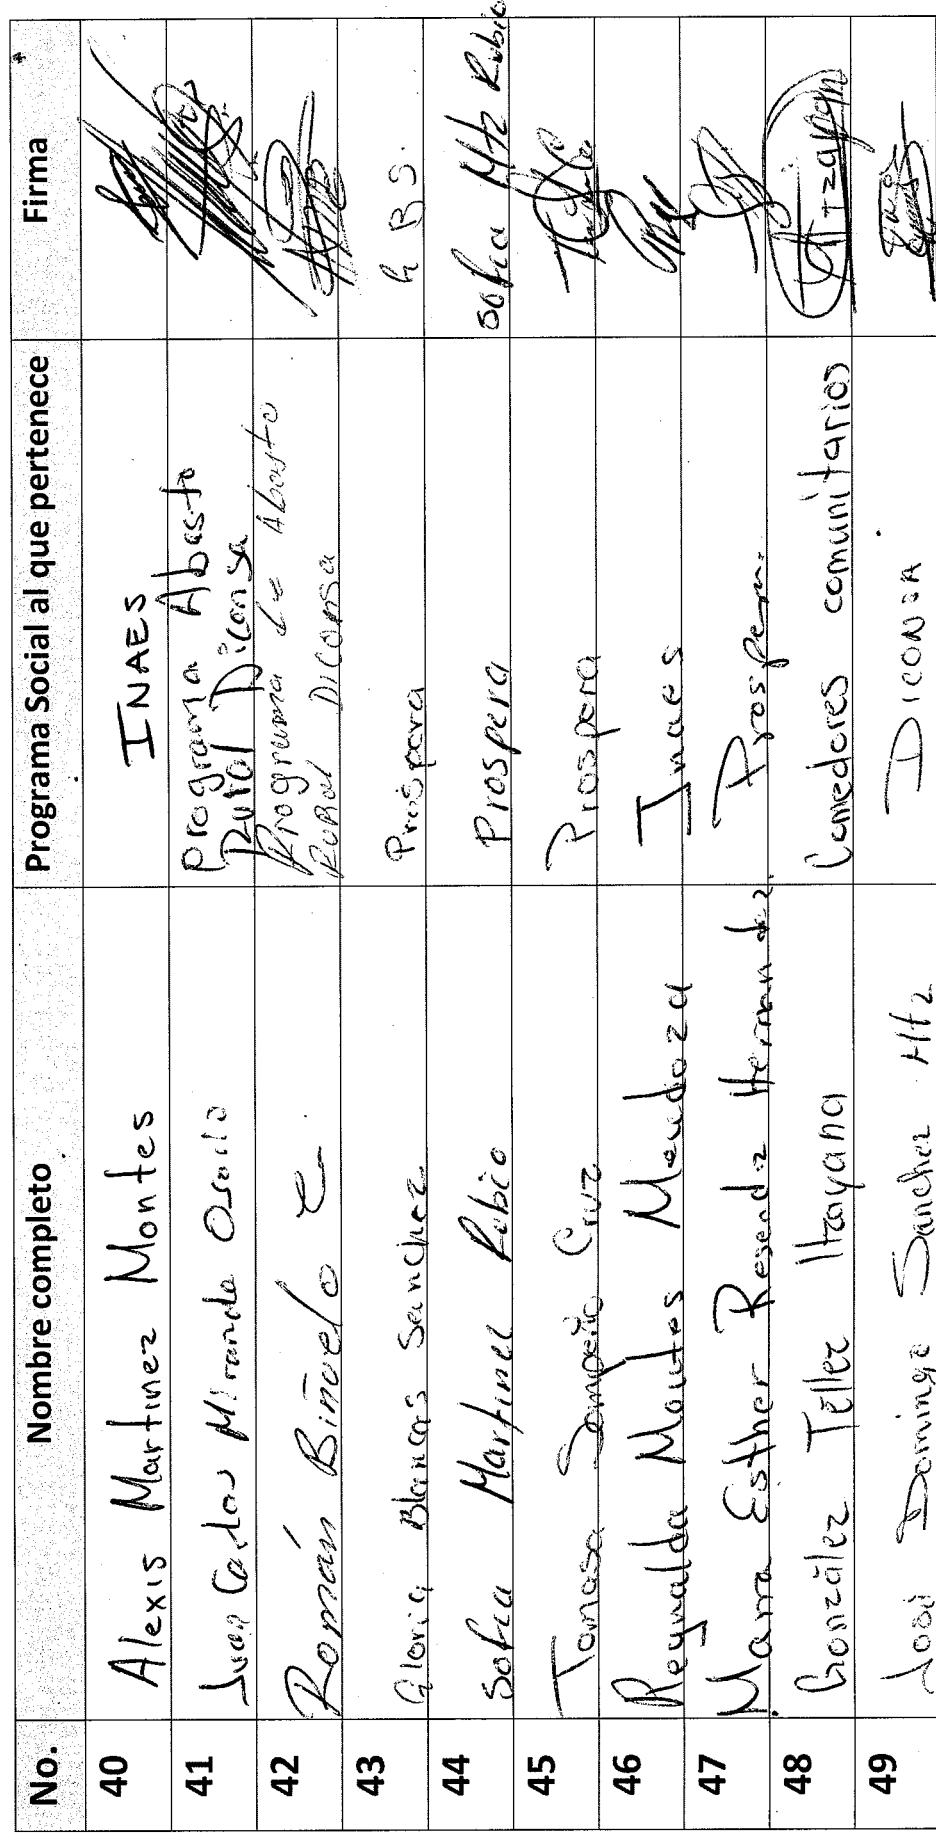 No. Nombre completo Programa Social al que pertenece Firma
40 Alexis Martinez Montes INAES
41 Juan Carlos Miranda Osorio Programa Abasto
Rural Diconsa
42 Román Biñuelo C Programa de Abasto
Rural Diconsa
43 Gloria Blancas Sanchez Prospera G B S.
44 Sofia Martinez Rubio Prospera Sofia Mtz Rubio
45 Tomasa Cruz Prospera
46 Reynalda Montes Mendoza Inaes
47 Maria Esther Resendiz Hernandez. Prospera
48 González Téller Itzayana Comedores comunitarios Itzayana
49 José Domingo Sanchez Htz DICONSA